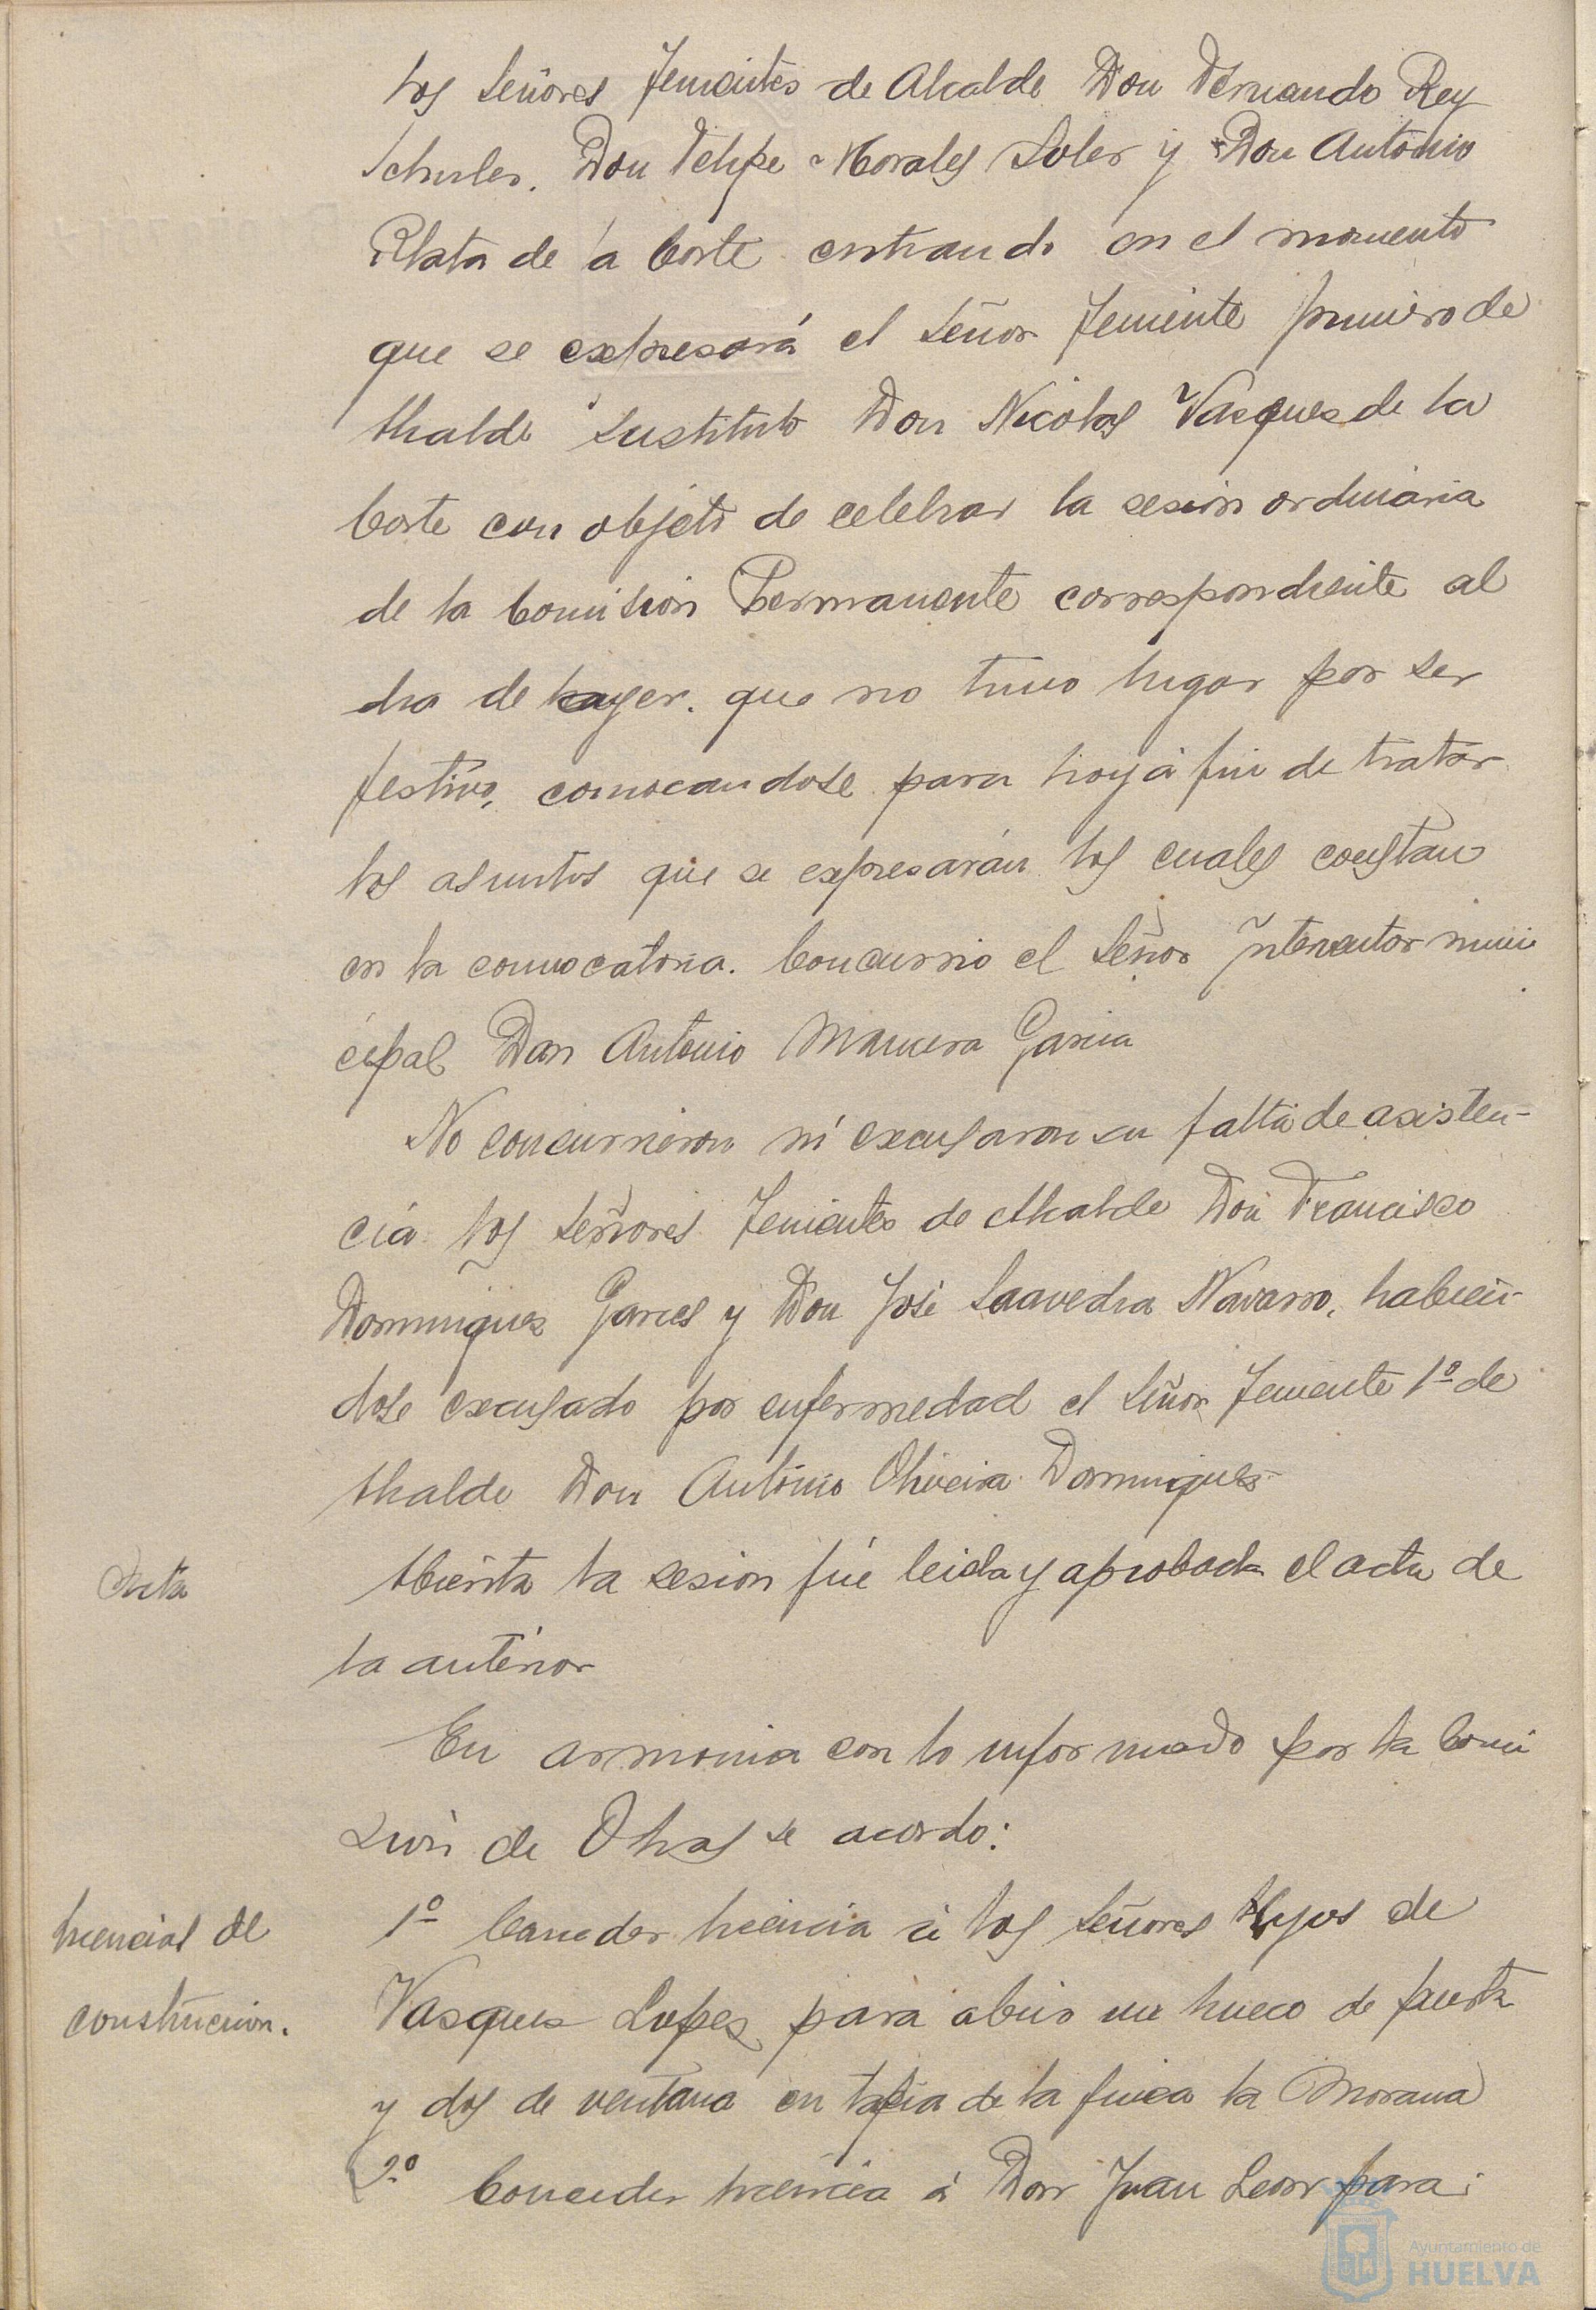 los señores Tenientes de Alcalde Don Fernando Rey
Schuler. Don Felipe Morales Soler y Don Antonio
Plata de la Corte entrando en el momento
que se expresará el señor Teniente primero de
Alcalde sustituto Don Nicolas Vasques de la
Corte con objeto de celebrar la sesion ordinaria
de la Comision Permanente correspondiente al
dia de hayer. que no tuvo lugar por ser
festivo, convocandose para hoy á fin de tratar
los asuntos que se expresarán los cuales constan
en la convocatoria. Concurrio el señor Interventor muni
cipal Don Antonio Mancera Garcia
No concurrieron ni excusaron su falta de asisten-
cia los señores Tenientes de Alcalde Don Francisco
Domingues Garces y Don José Saavedra Navarro, habien-
dose excusado por enfermedad el señor Teniente 1º de
Alcalde Don Antonio Oliveira Domingues
Acta
Abierta la sesion fué leida y aprobada el acta de
la anterior
En armonia con lo informado por la Comi
sion de Obras se acordo:
Licencias de
construccion.
1º Conceder licencia á los señores Hijos de
Vasques Lopes para abrir un hueco de puerta
y dos de ventana en tapia de la finca la Morana
2º Conceder licencia á Don Juan Leon para
Ayuntamiento de
HUELVA